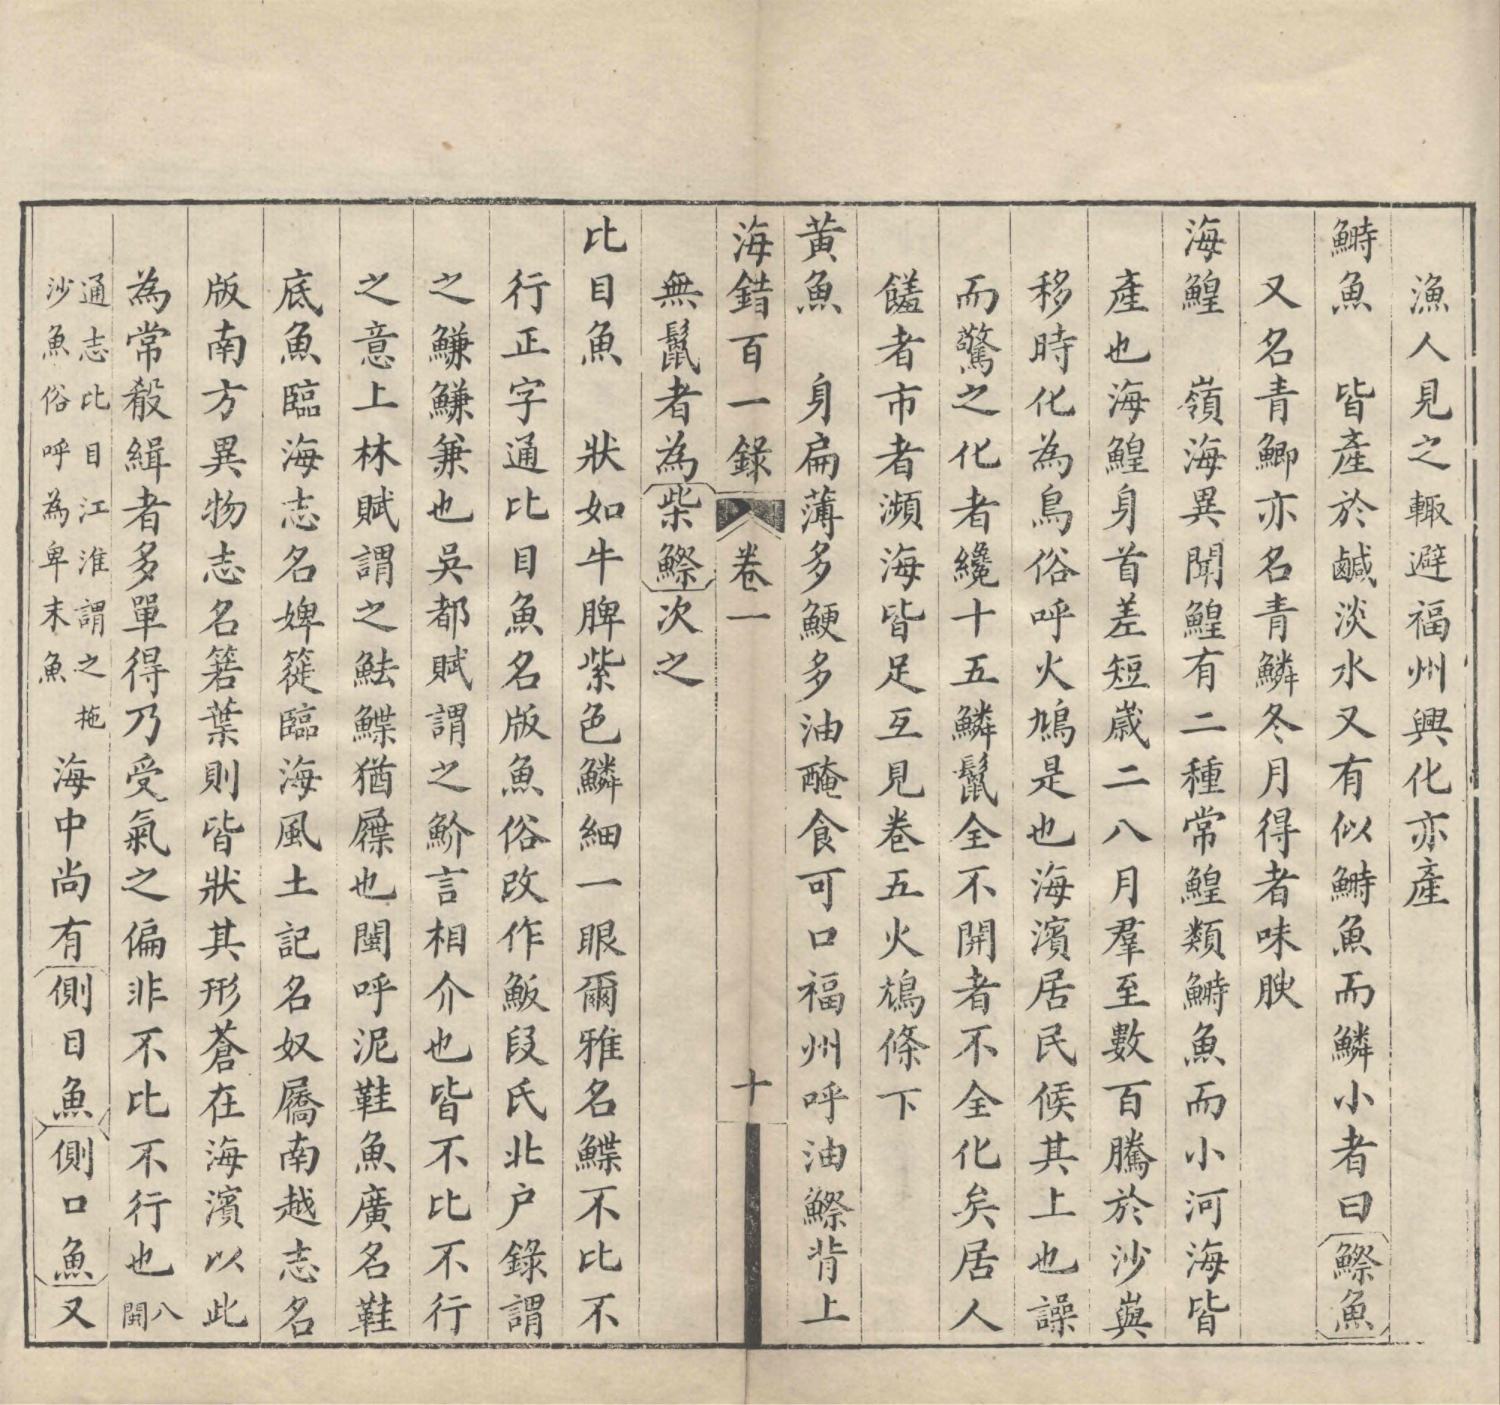 漁人見之輙避福州興化亦產
鰣魚　皆產於鹹淡水又有似鰣魚而鱗小者曰鰶魚
又名青鯽亦名青鱗冬月得者味腴
海鰉　嶺海異聞鰉有二種常鰉類鰣魚而小河海皆
產也海鰉身首差短歲二八月羣至數百騰於沙與
移時化為鳥俗呼火鳩是也海濱居民候其上也譟
而驚之化者纔十五鱗鬛全不開者不全化矣居人
饈者市者瀕海皆足互見卷五火鳩條下
黃魚　身扁薄多鯁多油醃食可口福州呼油鰶背上
海錯百一錄　卷一　十
無鬛者為柴鰶次之
比目魚　狀如牛脾紫色鱗細一眼爾雅名鰈不比不
行正字通比目魚名版魚俗改作魬段氏北户錄謂
之鰜鰜兼也吳都賦謂之魪言相介也皆不比不行
之意上林賦謂之魼鰈猶屧也閩呼泥鞋魚廣名鞋
底魚臨海志名婢簁臨海風土記名奴屩南越志名
版南方異物志名箬葉則皆狀其形蒼在海濱以此
為常殽緝者多單得乃受氣之偏非不比不行也八閩
通志比目江淮謂之拖沙魚俗呼為卑末魚海中尚有側目魚側口魚又